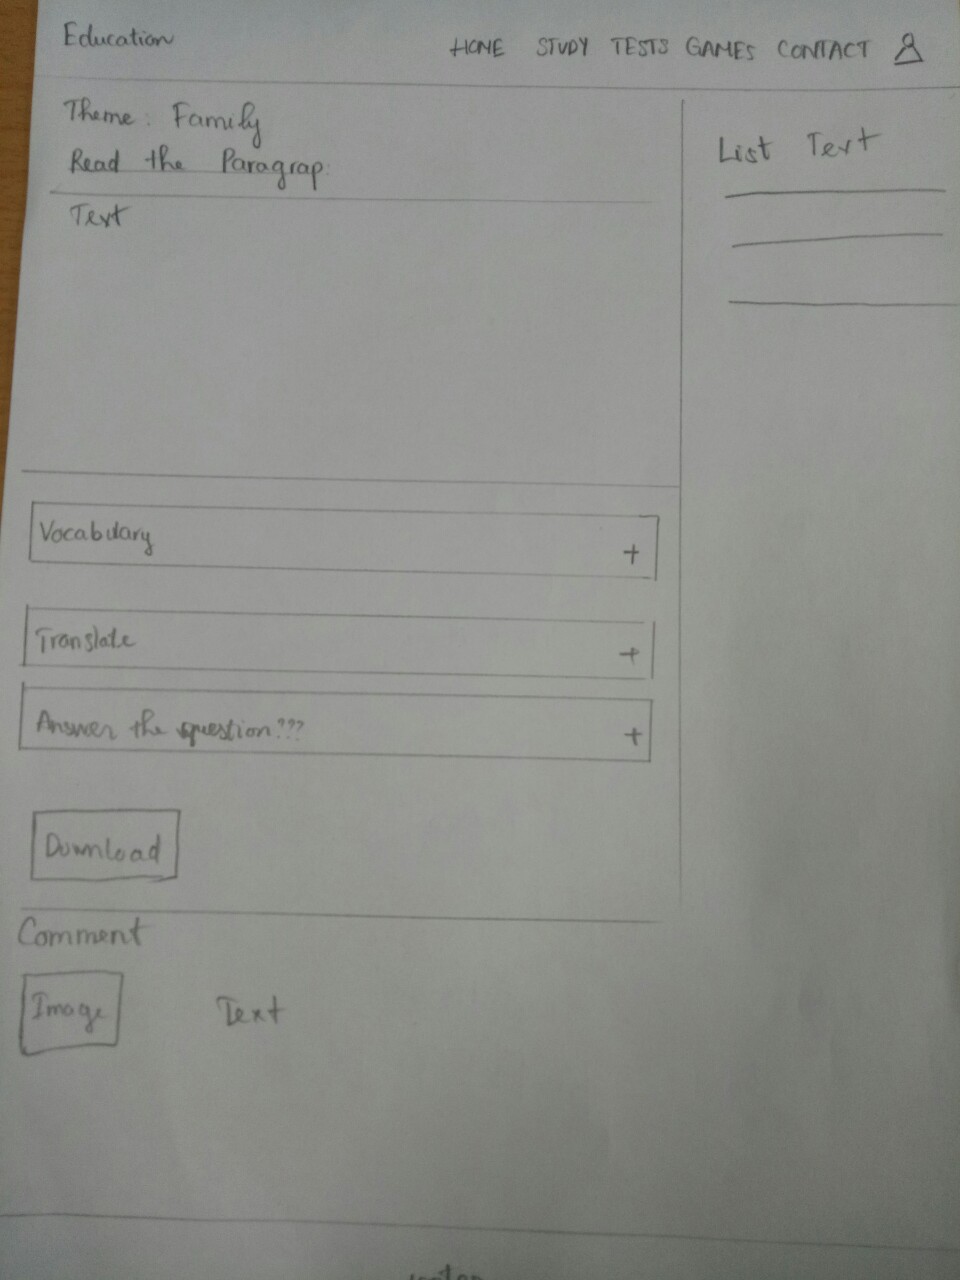 Education
HOME STUDY TESTS GAMES CONTACT
Theme: Family
Read the Paragrap:
Text
List Text
Vocabulary +
Translate +
Answer the question??? +
Download
Comment
Image Text